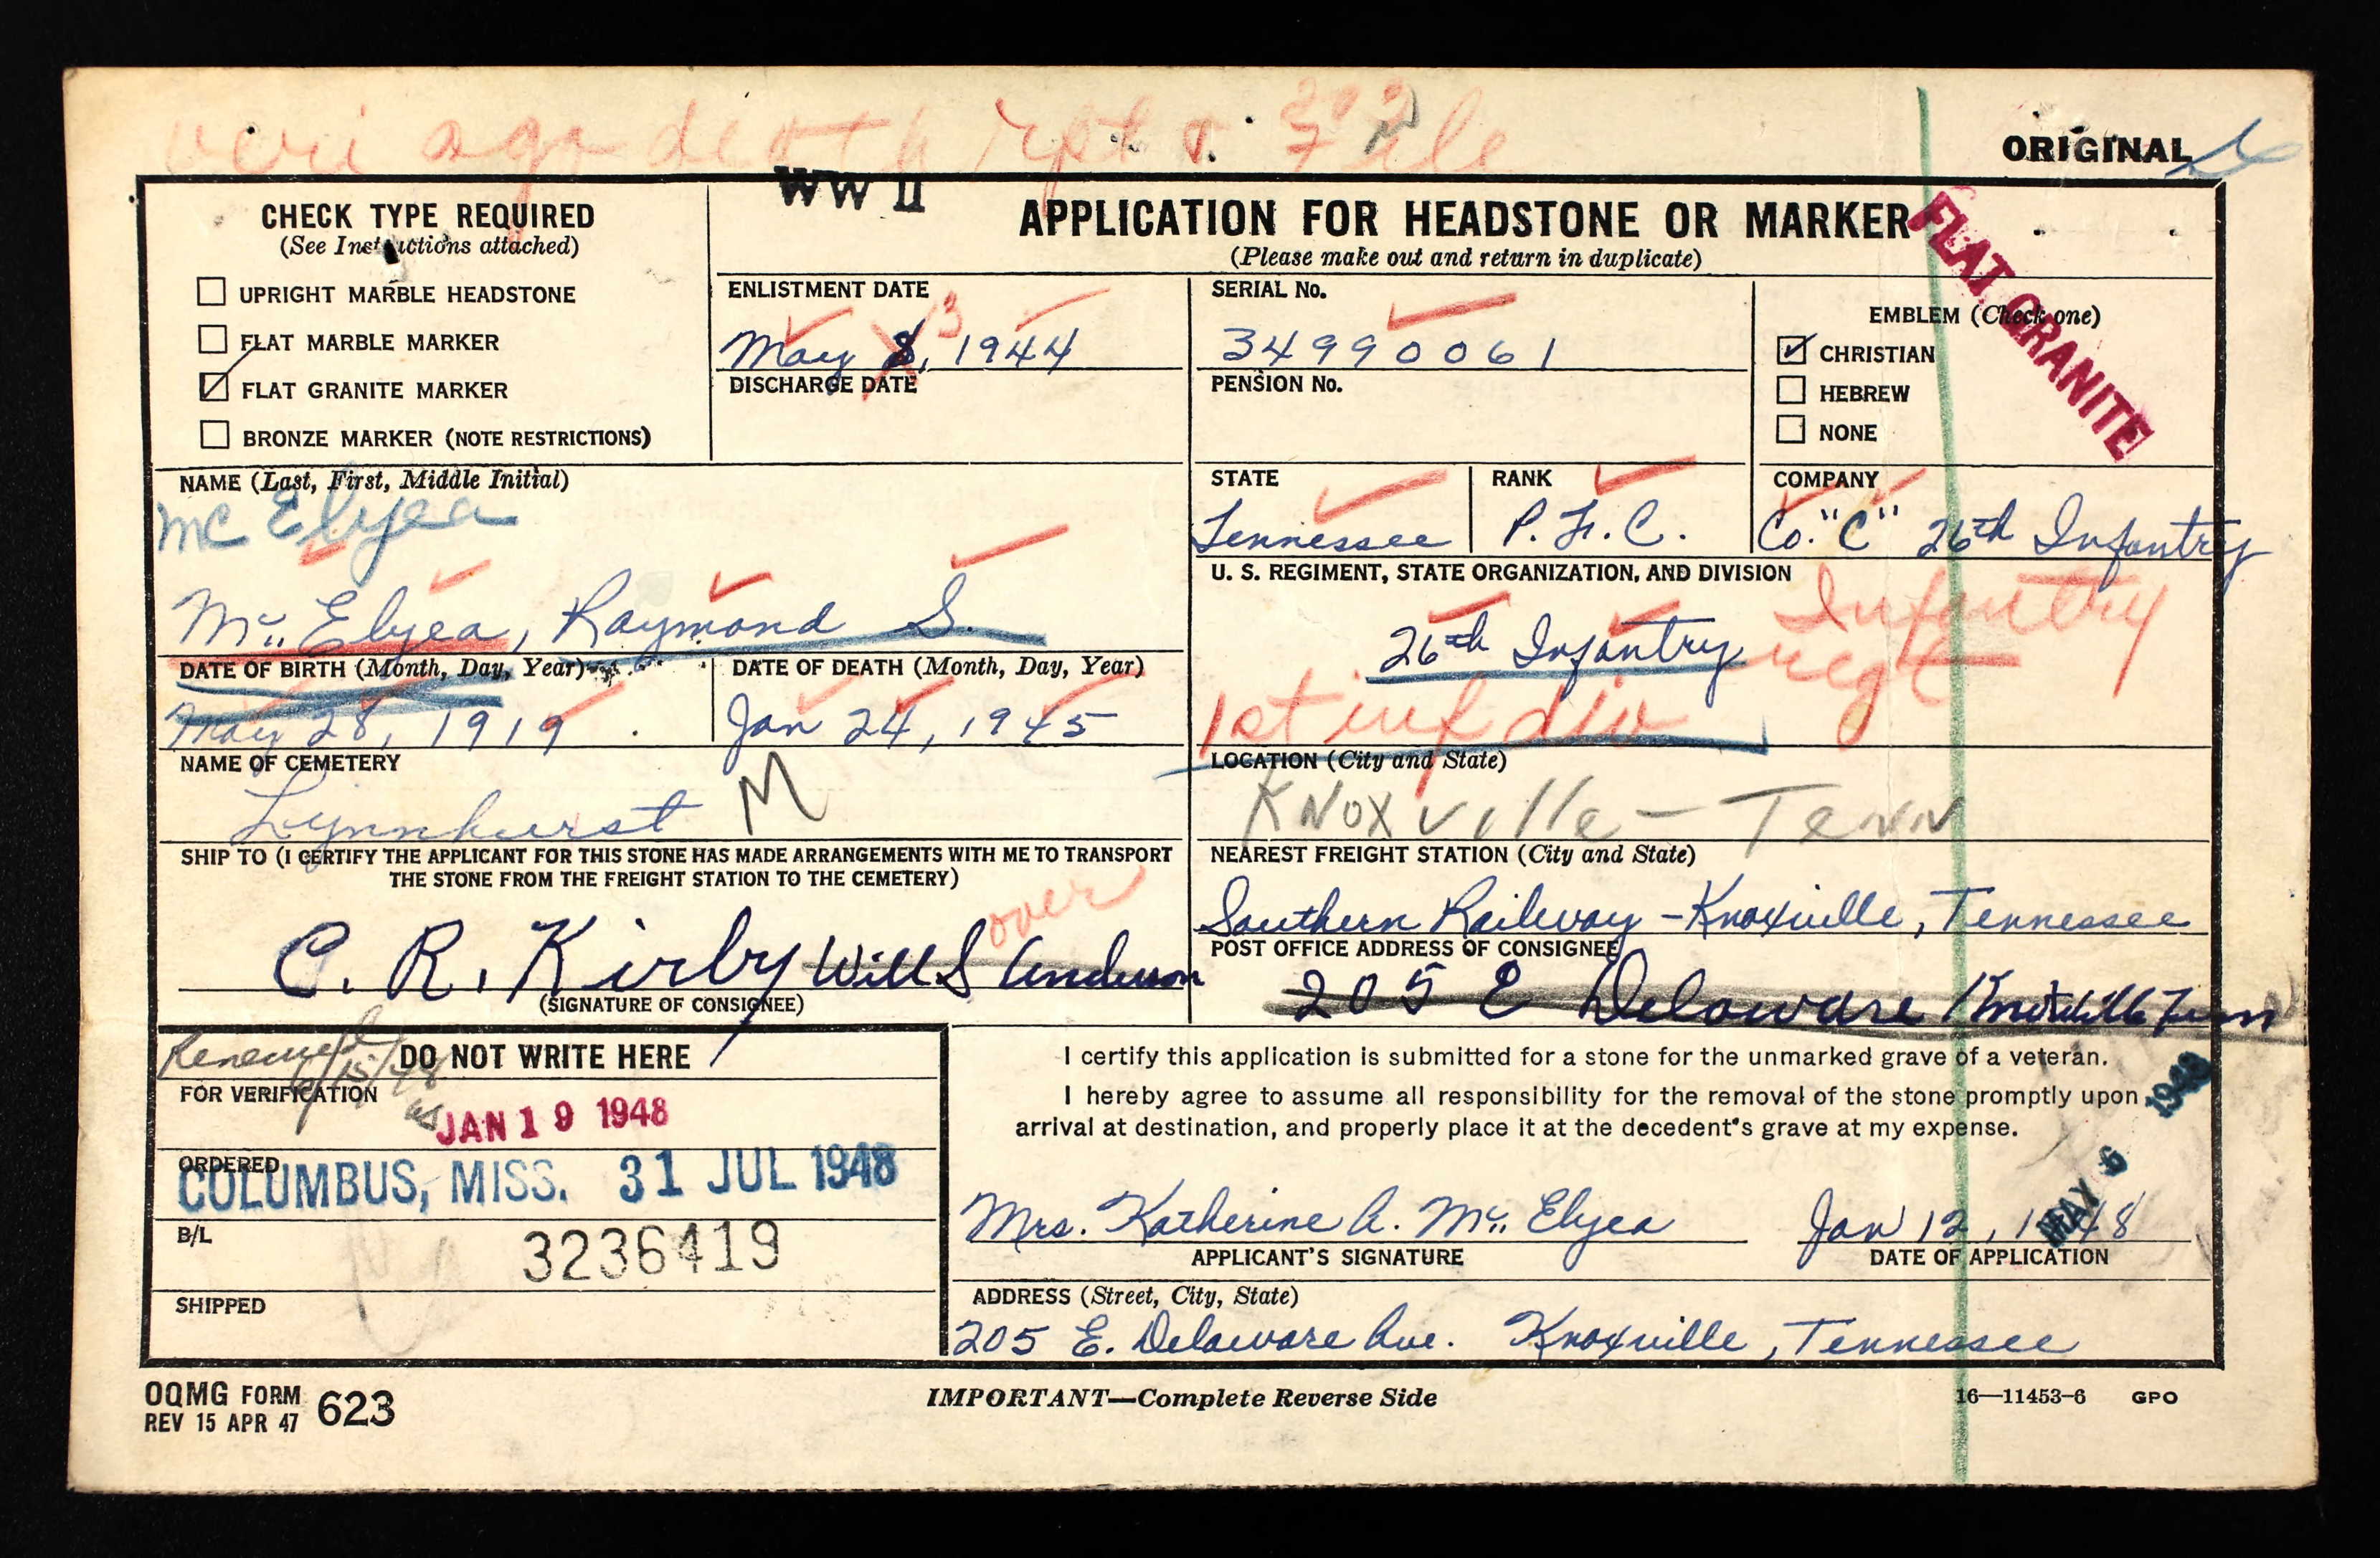 veri ago death rpt & File
ORIGINAL
WW II
CHECK TYPE REQUIRED
(See Instructions attached)
UPRIGHT MARBLE HEADSTONE
FLAT MARBLE MARKER
FLAT GRANITE MARKER
BRONZE MARKER (NOTE RESTRICTIONS)
APPLICATION FOR HEADSTONE OR MARKER
(Please make out and return in duplicate)
FLAT GRANITE
ENLISTMENT DATE
May 8, 1944
3
DISCHARGE DATE
SERIAL No.
34990061
PENSION No.
EMBLEM (Check one)
CHRISTIAN
HEBREW
NONE
NAME (Last, First, Middle Initial)
Mc Elyea
Mc Elyea, Raymond S.
STATE
Tennessee
RANK
P.F.C.
COMPANY
Co. "C" 26th Infantry
U. S. REGIMENT, STATE ORGANIZATION, AND DIVISION
26th Infantry
Infantry
regt
1st inf div
DATE OF BIRTH (Month, Day, Year)
May 28, 1919
DATE OF DEATH (Month, Day, Year)
Jan 24, 1945
NAME OF CEMETERY
Lynnhurst M
LOCATION (City and State)
Knoxville - Tenn
SHIP TO (I CERTIFY THE APPLICANT FOR THIS STONE HAS MADE ARRANGEMENTS WITH ME TO TRANSPORT
THE STONE FROM THE FREIGHT STATION TO THE CEMETERY)
over
C. R. Kirby Will S Anderson
(SIGNATURE OF CONSIGNEE)
NEAREST FREIGHT STATION (City and State)
Southern Railway - Knoxville, Tennessee
POST OFFICE ADDRESS OF CONSIGNEE
205 E Delaware Knoxville Tenn
DO NOT WRITE HERE
Renewed
6/15/48
FOR VERIFICATION
JAN 19 1948
ORDERED
COLUMBUS, MISS. 31 JUL 1948
B/L
3236419
SHIPPED
I certify this application is submitted for a stone for the unmarked grave of a veteran.
I hereby agree to assume all responsibility for the removal of the stone promptly upon
arrival at destination, and properly place it at the decedent's grave at my expense.
MAY 6 1948
Mrs. Katherine A. Mc Elyea
APPLICANT'S SIGNATURE
Jan 12, 1948
DATE OF APPLICATION
ADDRESS (Street, City, State)
205 E. Delaware Ave. Knoxville, Tennessee
OQMG FORM 623
REV 15 APR 47
IMPORTANT—Complete Reverse Side
16—11453-6 GPO